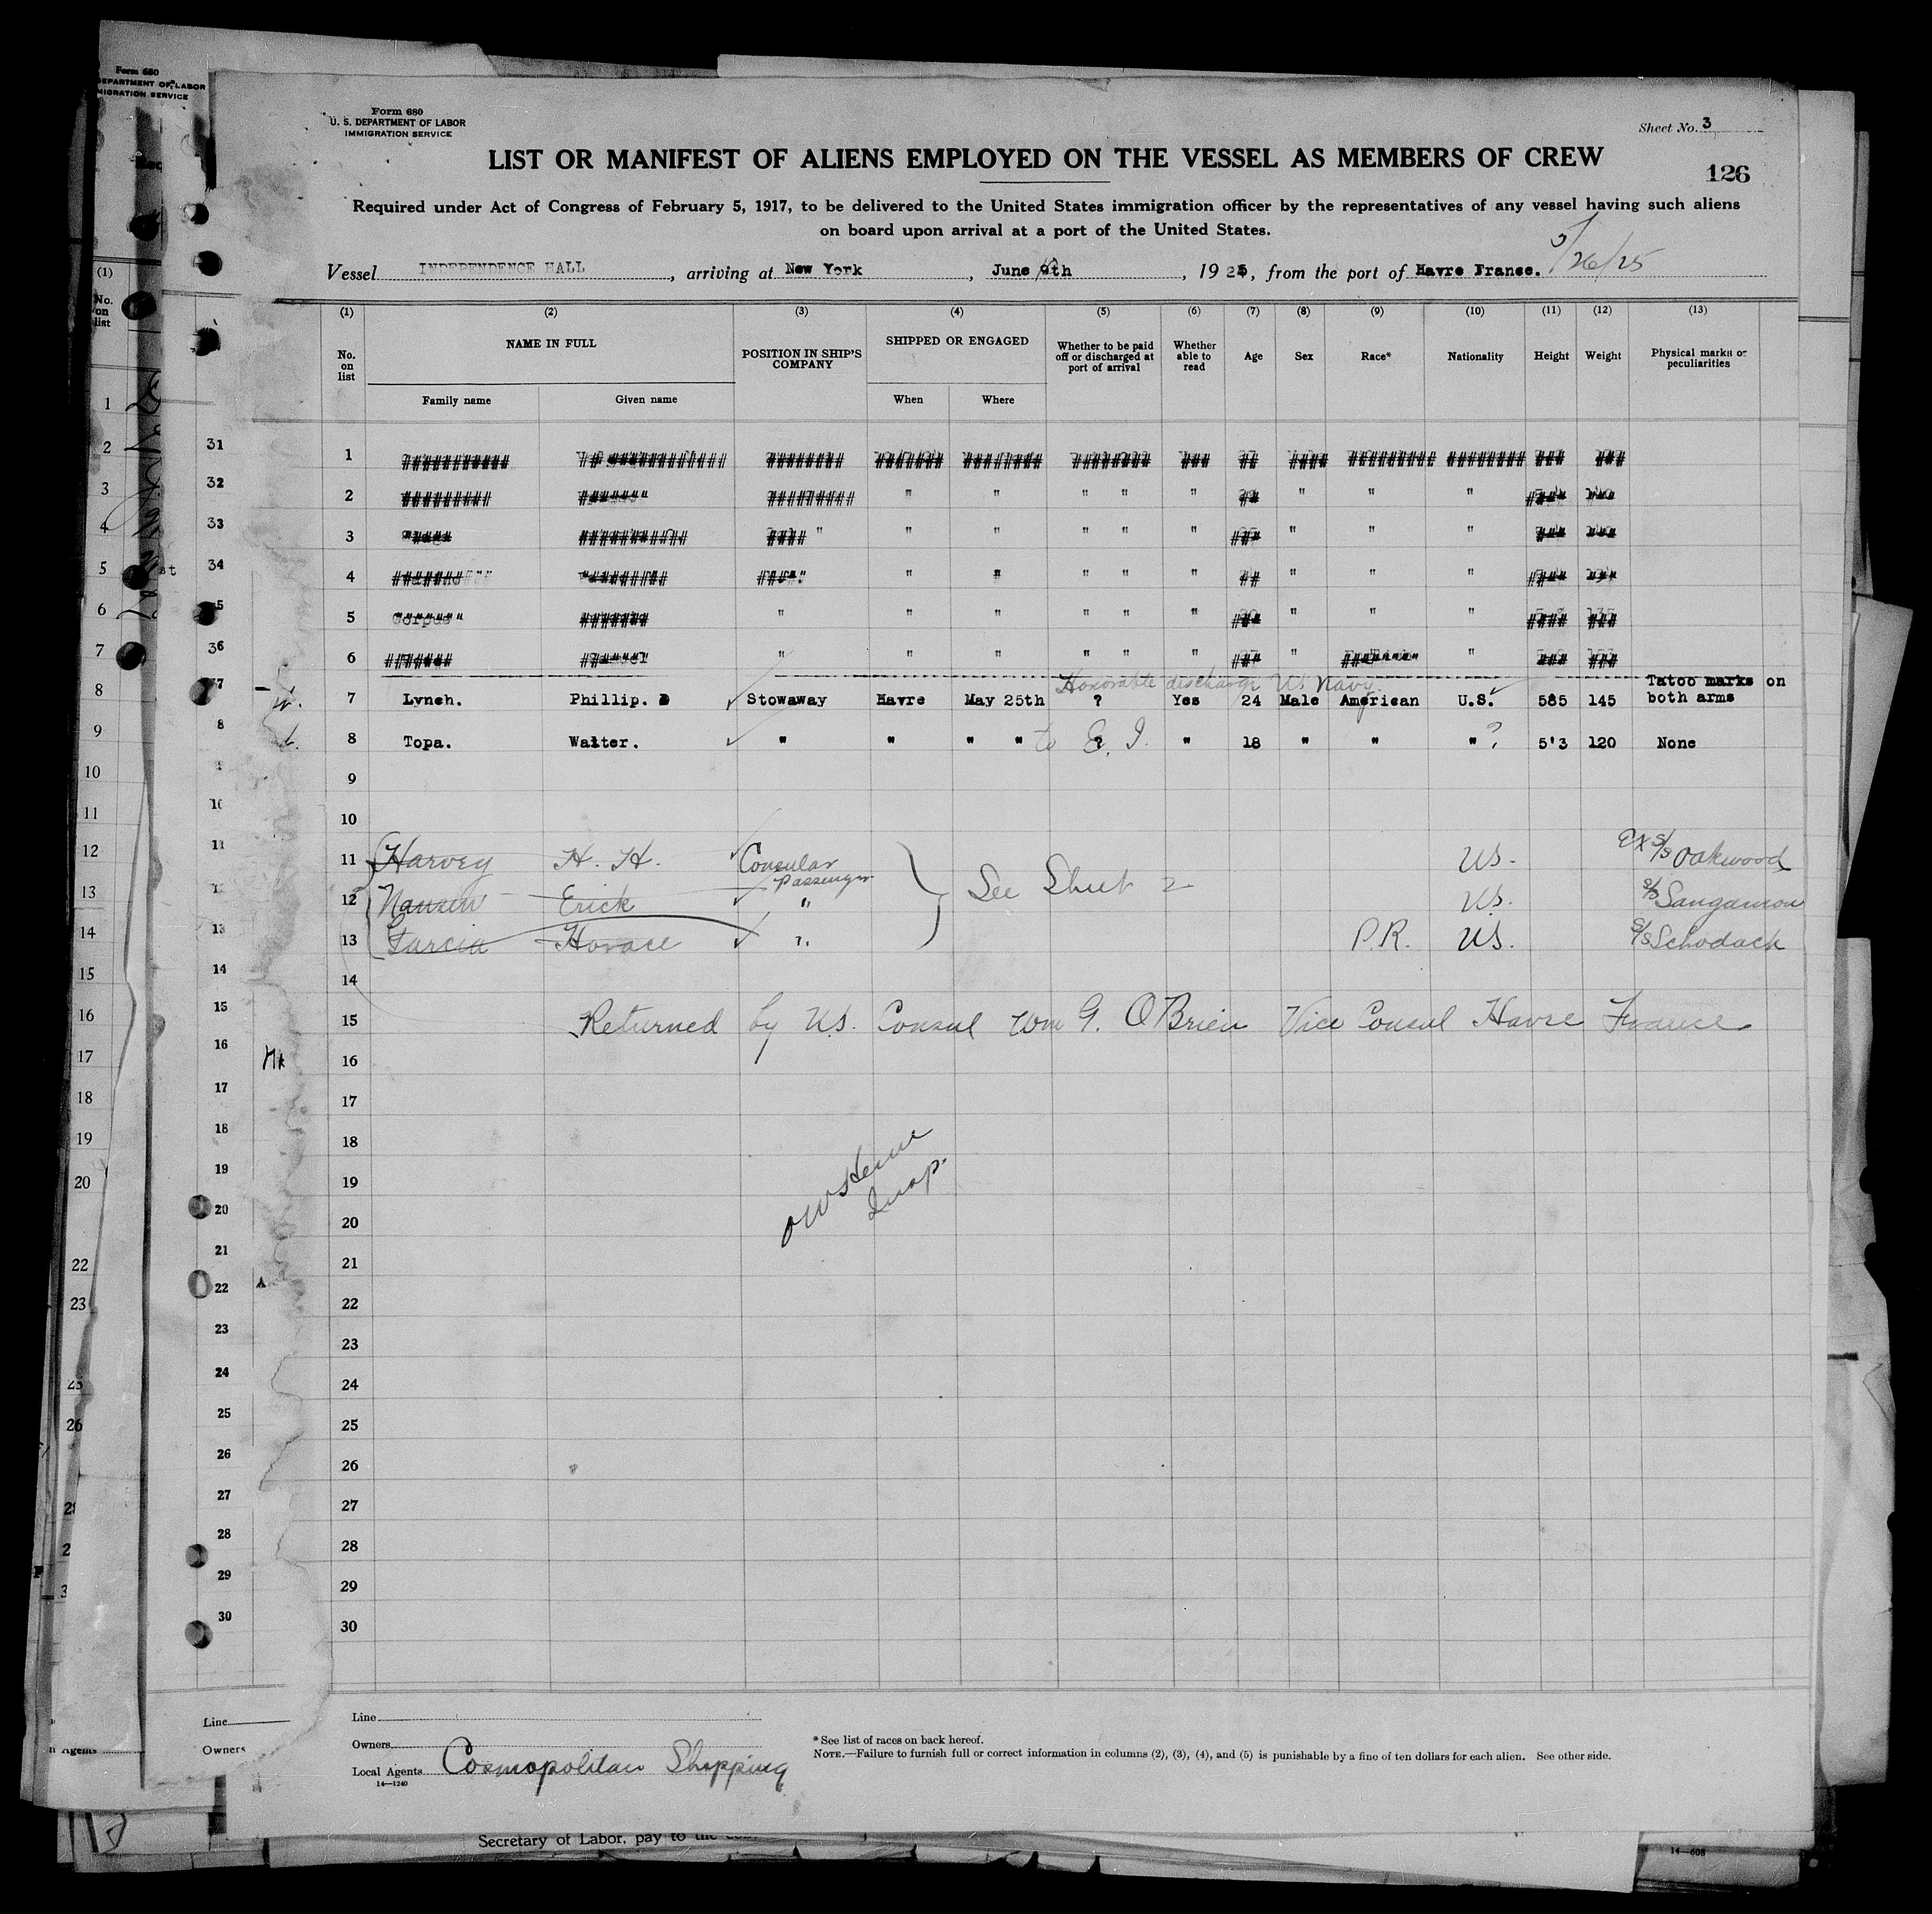 Form 680
DEPARTMENT OF LABOR
MIGRATION SERVICE
Form 680
U. S. DEPARTMENT OF LABOR
IMMIGRATION SERVICE
Sheet No. 3
LIST OR MANIFEST OF ALIENS EMPLOYED ON THE VESSEL AS MEMBERS OF CREW
126
Required under Act of Congress of February 5, 1917, to be delivered to the United States immigration officer by the representatives of any vessel having such aliens
on board upon arrival at a port of the United States.
5/26/25
Vessel INDEPENDENCE HALL, arriving at New York, June 9th, 1925, from the port of Havre France.
(1) (2) (3) (4) (5) (6) (7) (8) (9) (10) (11) (12) (13)
No. on list
NAME IN FULL
Family name
Given name
POSITION IN SHIP'S COMPANY
SHIPPED OR ENGAGED
When
Where
Whether to be paid off or discharged at port of arrival
Whether able to read
Age
Sex
Race*
Nationality
Height
Weight
Physical marks or peculiarities
1
2
3
4
5
6
Honorable discharge US Navy
7 Lynch. Phillip. D Stowaway Havre May 25th ? Yes 24 Male American U.S. 585 145 Tatoo marks on both arms
8 Topa. Walter. " " " " to E. I. ? " 18 " " " ? 5'3 120 None
9
10
11 Harvey H. H. Consular Passenger US. Ex S/S Oakwood
12 Nansen Erick " See Sheet 2 US. S/S Sangamon
13 Garcia Horace " P.R. US. S/S Schodack
14
15 Returned by U.S. Consul Wm G. O'Brien Vice Consul Havre France
16
17
18
19
Insp.
20
21
22
23
24
25
26
27
28
29
30
Line
Owners
Local Agents Cosmopolitan Shipping
14—1240
* See list of races on back hereof.
NOTE.—Failure to furnish full or correct information in columns (2), (3), (4), and (5) is punishable by a fine of ten dollars for each alien. See other side.
Line
Owners
Secretary of Labor, pay to the
14—608